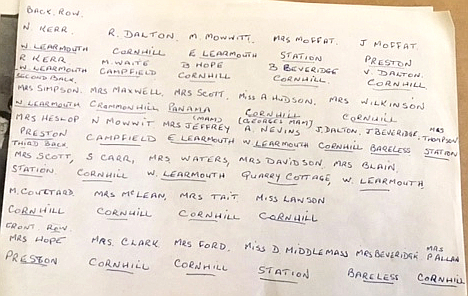 BACK. ROW.
N KERR. R. DALTON. M MOWWITT. MRS MOFFAT. J MOFFAT.
W. LEARMOUTH CORNHILL E LEARMOUTH STATION PRESTON
R KERR M. WAITE B HOPE B BEVERIDGE V. DALTON.
W. LEARMOUTH CAMPFIELD CORNHILL CORNHILL. CORNHILL
SECOND BACK.
MRS SIMPSON. MRS MAXWELL. MRS SCOTT. MISS A HUDSON. MRS WILKINSON
W LEARMOUTH CRAMMONHILL PANAMA CORNHILL CORNHILL
(MAM) (GEORGES MAM)
MRS HESLOP N MOWWIT MRS JEFFREY A. NEVINS J. DALTON. J. BEVERIDGE. MRS THOMPSON
PRESTON CAMPFIELD E LEARMOUTH W LEARMOUTH CORNHILL BARELESS STATION
THIRD BACK.
MRS SCOTT, S CARR, MRS, WATERS, MRS DAVIDSON, MRS BLAIN.
STATION. CORNHILL W. LEARMOUTH QUARRY COTTAGE, W. LEARMOUTH
M. MRS McLEAN, MRS TAIT MISS LAWSON
CORNHILL CORNHILL CORNHILL CORNHILL
FRONT ROW.
MRS HOPE MRS. CLARK MRS FORD. MISS D. MIDDLEMASS MRS BEVERIDGE MRS P ALLAN
PRESTON CORNHILL CORNHILL STATION BARELESS CORNHILL